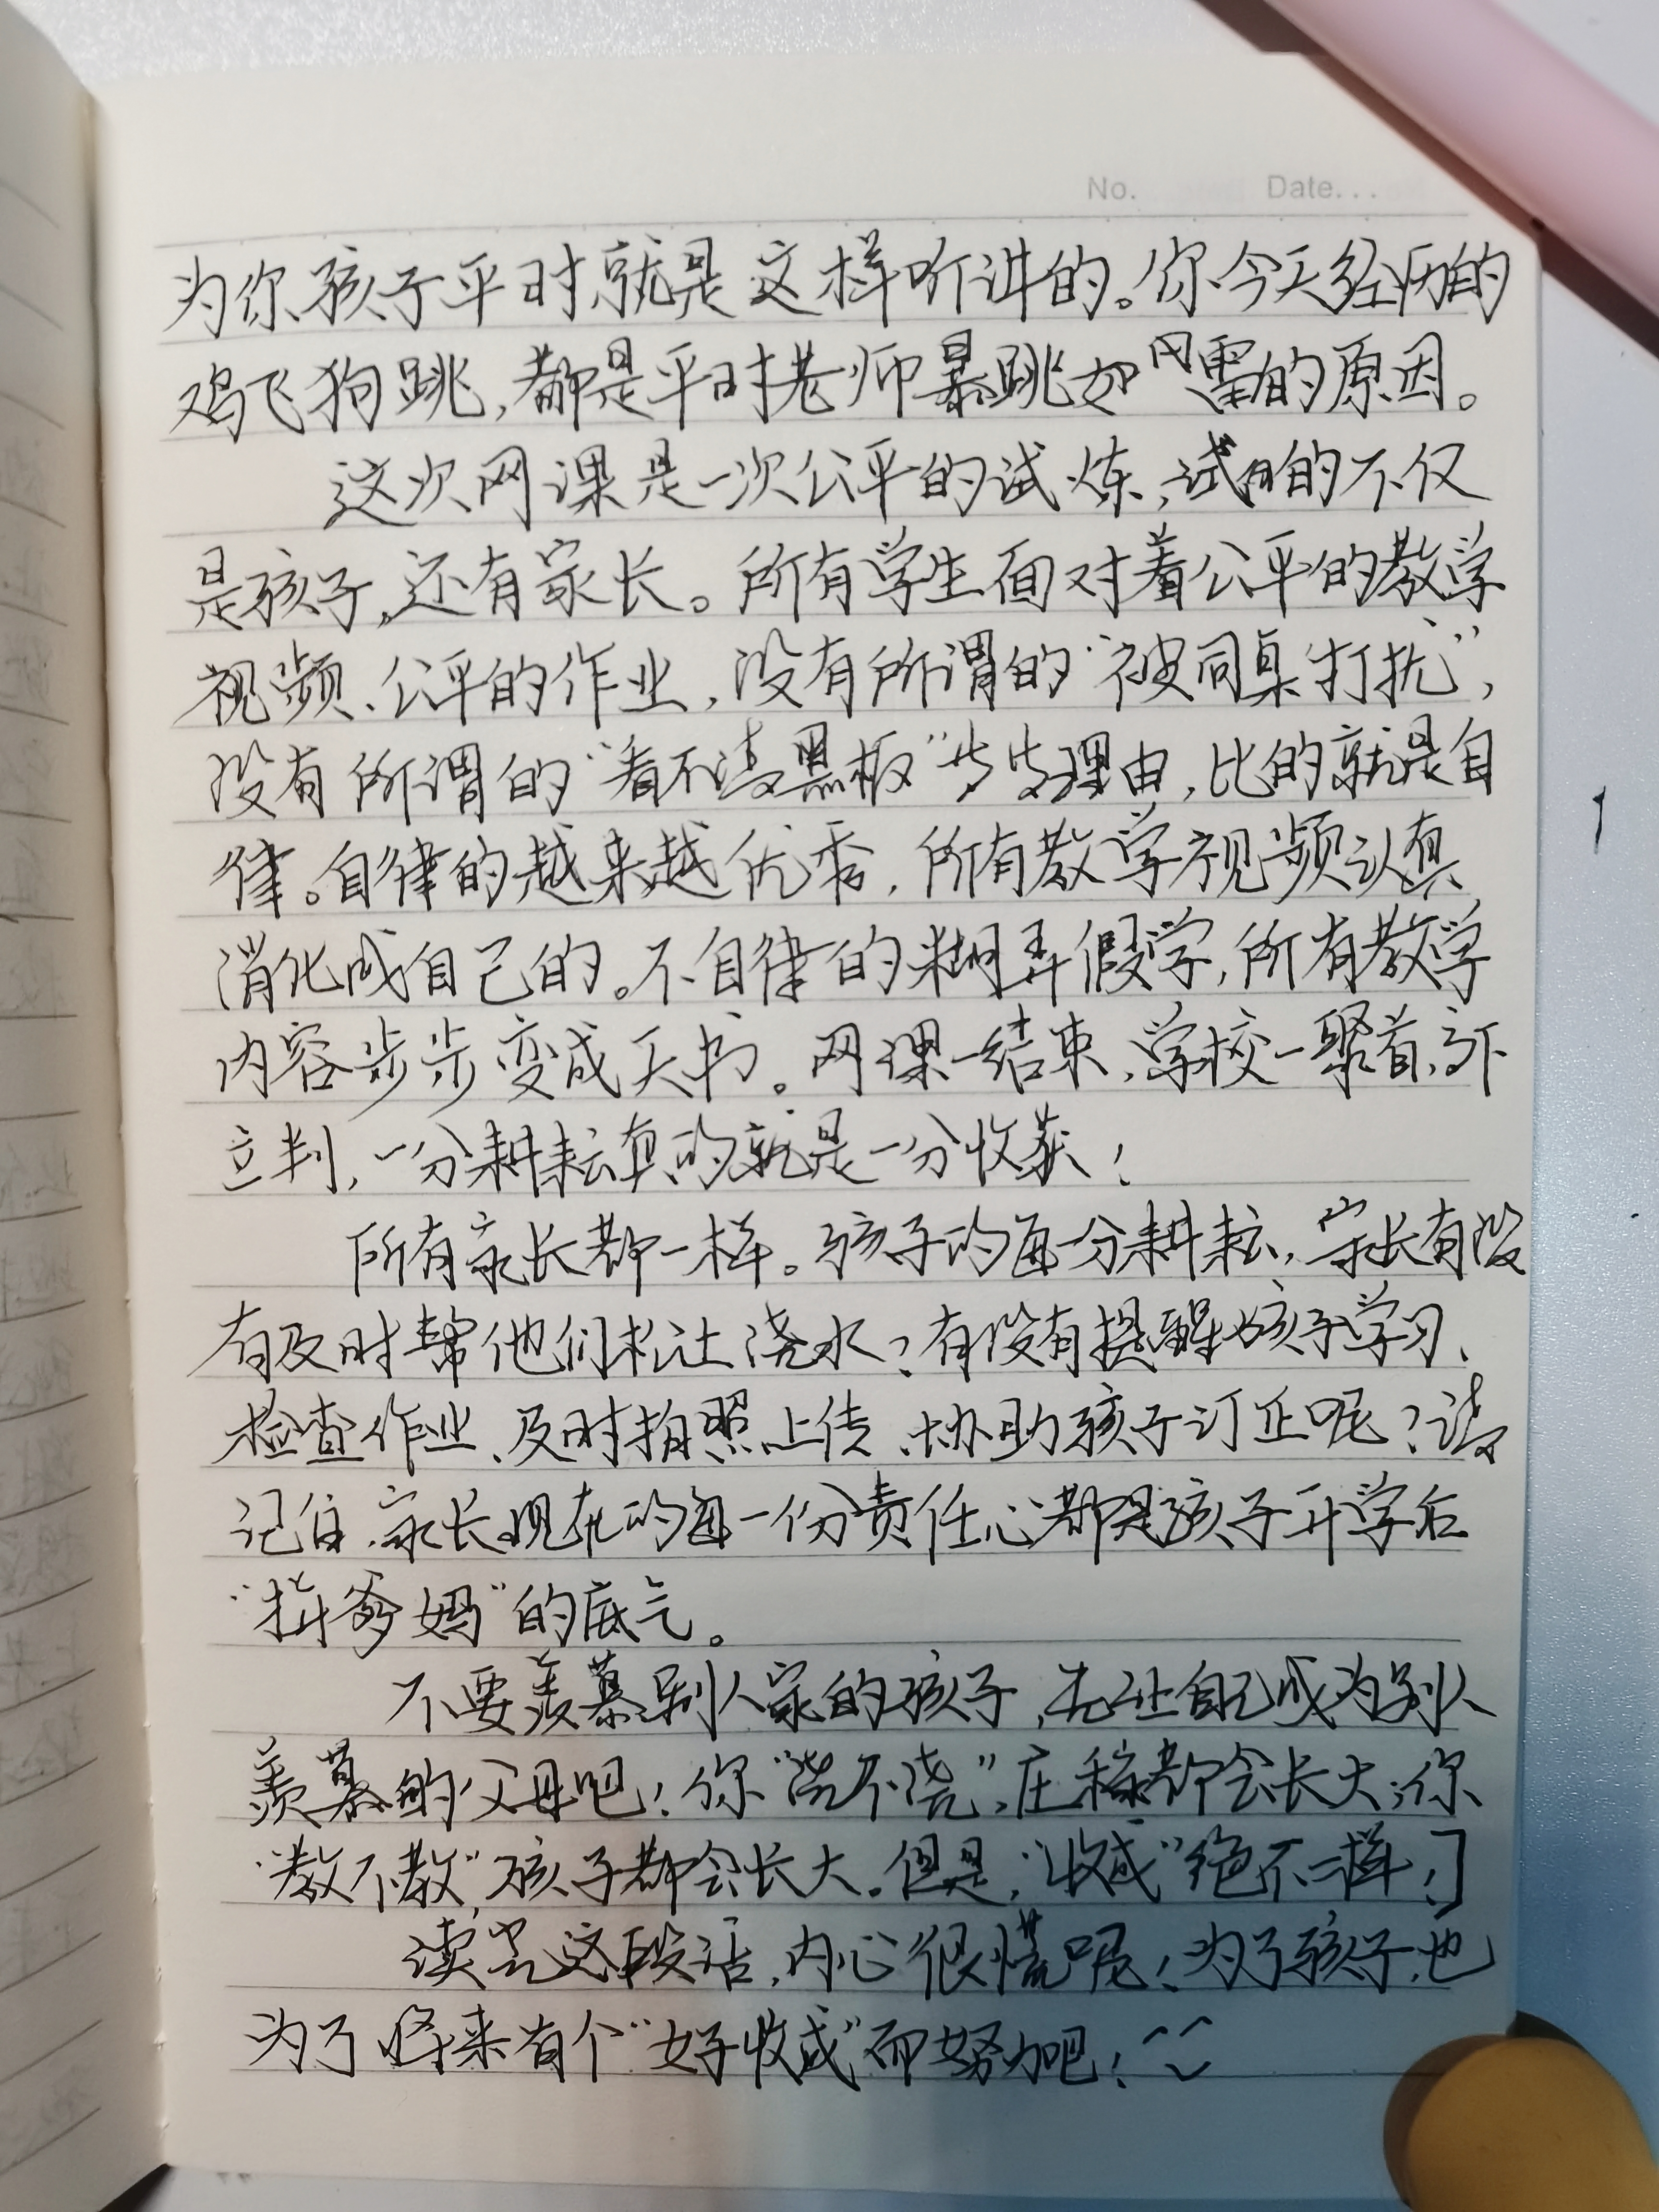 No. Date...
为你孩子平时就是这样听讲的。你今天经历的
鸡飞狗跳,都是平时老师暴跳如雷的原因。
这次网课是一次公平的试炼,试的不仅
是孩子,还有家长。所有学生面对着公平的教学
视频、公平的作业,没有所谓的“被同桌打扰”,
没有所谓的“看不清黑板”步步理由,比的就是自
律。自律的越来越优秀,所有教学视频认真
消化成自己的。不自律的糊弄假学,所有教学
内容步步变成天书。网课一结束,学校一聚首,高下
立判,一分耕耘真的就是一分收获!
所有家长都一样。孩子的每一分耕耘,家长有没
有及时帮他们松土浇水?有没有提醒孩子学习、
检查作业、及时拍照上传、协助孩子订正呢?请
记住,家长现在的每一份责任心都是孩子开学后
“拼爹妈”的底气。
不要羡慕别人家的孩子,先让自己成为别人
羡慕的父母吧!你“浇不浇”,庄稼都会长大;你
“教不教”,孩子都会长大。但是,“收成”绝不一样!]
读完这段话,内心很慌呢!为了孩子,也
为了将来有个“好收成”而努力吧!